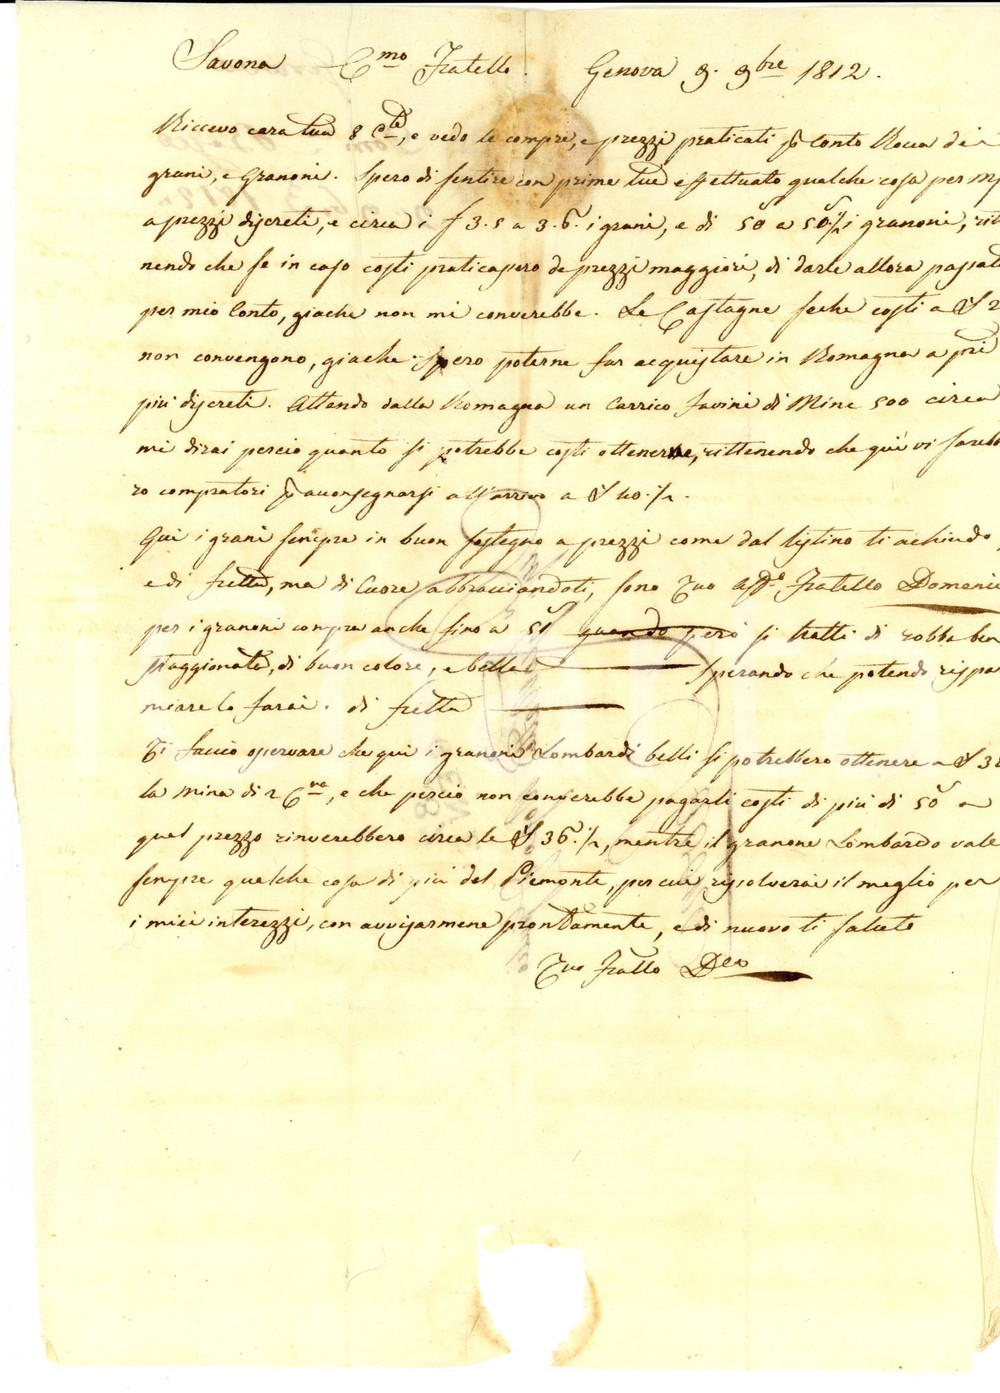 Savona C.mo Fratello. Genova 9. 9bre 1812.
Ricevo cara tua 8 C.te, e vedo le compre, e prezzi praticati p Conto Rocca dei
grani, e Granoni. Spero di sentire con prime tue effettuato qualche cosa per m
a prezzi discreti, e circa i f 3.5 a 3.6. i grani, e di 50 a 50.½ i granoni, rit
nendo che se in caso costi praticassero de prezzi maggiori, di darle allora passat
per mio Conto, giache non mi converebbe. Le Castagne seche costi a
non convengono, giache spero poterne far acquistare in Romagna a pzi
più discreti. Attendo dalla Romagna un Carrico favini di Mine 500 circa
mi dirai percio quanto si potrebbe costi ottenerne, rittenendo che quì vi sareb
ro compratori p a consegnarsi all'arrivo a 40.½.
Qui i grani sempre in buon sostegno a prezzi come dal listino ti achiudo,
e di fretta, ma di Cuore abbracciandoti, sono Tuo aff.o Fratello Domenic
per i granoni compra anche fino a 51 quando però si tratti di robbe ben
staggionate, di buon colore, e belle Sperando che potendo rispar
miare lo farai. di fretta
Ti faccio osservare che quì i granoni Lombardi belli si potrebbero ottenere a
la Mina di 2 C.ne, e che percio non converebbe pagarli costi di più di 50 a
qual prezzo rinverebbero circa le 36.½, mentre il granone Lombardo vale
sempre qualche cosa di più del Piemonte, per cui risolverai il meglio per
i miei interezzi, con avvisarmene prontamente, e di nuovo ti saluto
Tuo Frallo D.co